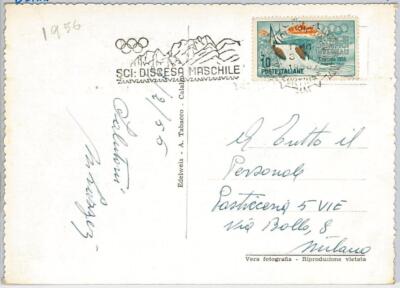 1956
SCI: DISCESA MASCHILE
10
POSTE ITALIANE
Edelweis - A. Tabacco - Calalzo
Saluti
A Tutto il
Personale
Pasticceria 5 VIE
Via Bollo, 8
Milano
Vera fotografia - Riproduzione vietata